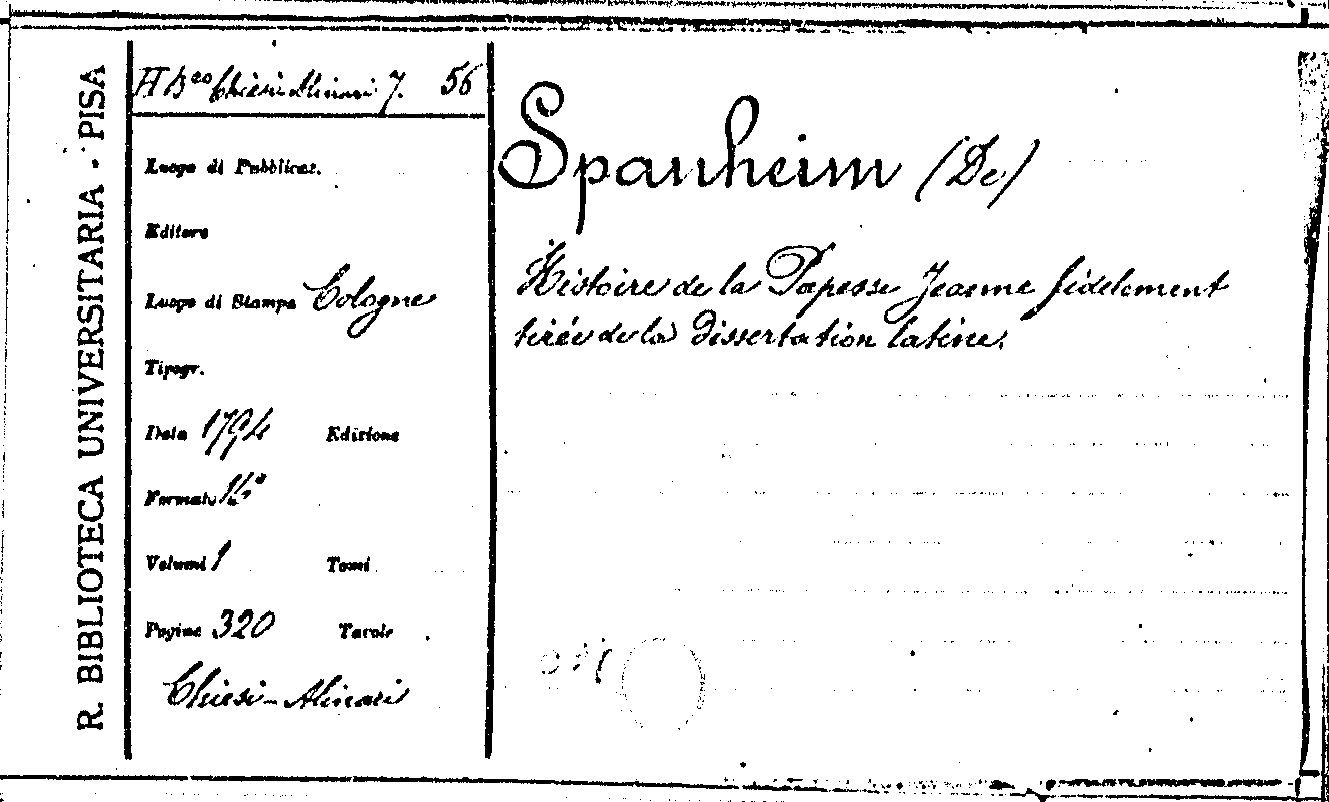 R. BIBLIOTECA UNIVERSITARIA - PISA
H Bco Chiesi-Alinari 7. 56
Luogo di Pubblicaz.
Editore
Luogo di Stampa Cologne
Tipogr.
Data 1794 Edizione
Formato 16°
Volumi 1 Tomi
Pagine 320 Tavole
Chiesi-Alinari
Spanheim (De)
Histoire de la Papesse Jeanne fidelement
tirée de la dissertation latine.